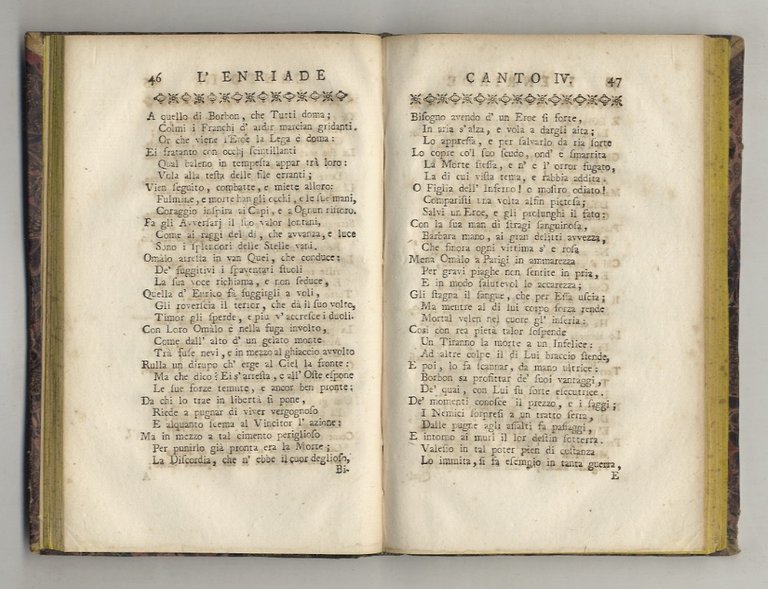 46 L' ENRIADE
A quello di Borbon, che Tutti doma;
Colmi i Franchi d' ardir marcian gridanti.
Or che viene l'Eroe la Lega è doma:
Ei fratanto con occhj scintillanti
Qual baleno in tempesta appar trà loro:
Vola alla testa delle file erranti;
Vien seguito, combatte, e miete alloro:
Fulmine, e morte han gli occhi, e le sue mani,
Coraggio inspira ai Capi, e a Ognun ristoro.
Fa gli Avversarj il suo valor lontani,
Come ai raggi del dì, che avvanza, e luce
Sono i splendori delle Stelle vani.
Omàlo arresta in van Quei, che conduce:
De' fuggitivi i spaventati stuoli
La sua voce richiama, e non seduce,
Quella d' Enrico fà fuggirgli a voli,
Gli rovescia il terror, che dà il suo volto,
Timor gli sperde, e più v' accresce i duoli.
Con Loro Omàlo e nella fuga involto,
Come dall' alto d' un gelato monte
Trà fuse nevi, e in mezzo al ghiaccio avvolto
Rulla un dirupo ch' erge al Ciel la fronte:
Ma che dico? Ei s'arresta, e all' Oste espone
Le sue forze temute, e ancor ben pronte;
Da chi lo trae in libertà si pone,
Riede a pugnar di viver vergognoso
E alquanto scema al Vincitor l' azione:
Ma in mezzo a tal cimento periglioso
Per punirlo già pronta era la Morte;
La Discordia, che n' ebbe il cuor deglioso,
Bi-
CANTO IV. 47
Bisogno avendo d' un Eroe sì forte,
In aria s'alza, e vola a dargli aita;
Lo appressa, e per salvarlo da ria sorte
Lo copre co'l suo scudo, ond' è smarrita
La Morte stessa, e n' è l' orror fugato,
La di cui vista tema, e rabbia addita.
O Figlia dell' Inferno! o mostro odiato!
Comparisti tra volta alfin pietosa;
Salvi un Eroe, e gli prolunghi il fato:
Con la sua man di stragi sanguinosa,
Barbara mano, ai gran delitti avvezza,
Che finora ogni vittima s' è rosa
Mena Omàlo a Parigi in ammarezza
Per gravi piaghe non sentite in pria,
E in modo salutevol lo accarezza;
Gli stagna il sangue, che per Essa uscia;
Ma mentre al di lui corpo forza rende
Mortal velen nel cuore gl' inseria:
Così con rea pietà talor sospende
Un Tiranno la morte a un Infelice:
Ad altre colpe il di Lui braccio stende,
E poi, lo fa scannar, da mano ultrice:
Borbon sa profittar de' suoi vantaggi,
De' quai, con Lui fu sorte esecutrice.
De' momenti conosce il prezzo, e i saggj;
I Nemici sorpresi a un tratto serra,
Dalle pugne agli assalti fa passaggj,
E intorno ai muri il lor destin sotterra.
Valesio in tal poter pien di costanza
Lo immita, si fa esempio in tanta guerra,
E